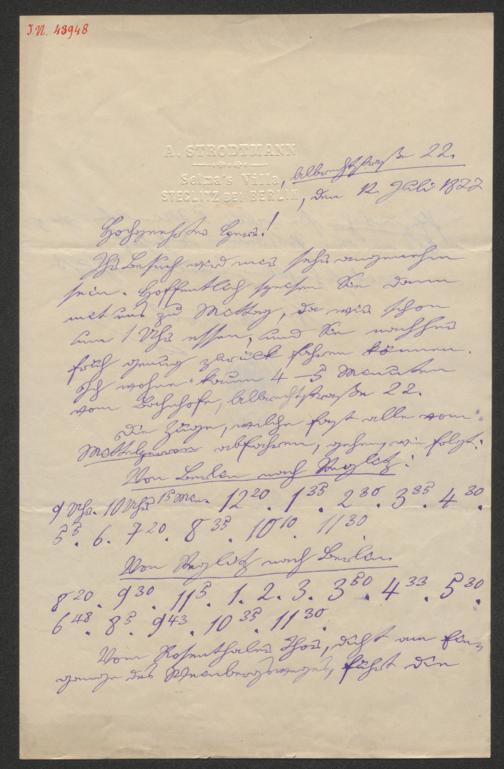 I.N. 43948
A. STRODTMANN
Selma's Villa,
STEGLITZ BEI BERLIN
Albrechtstraße 22.
, den 12 Juli 1877
Hochgeehrter Herr!
Ihr Besuch wird mir sehr angenehm
sein. Hoffentlich speisen Sie dann
mit uns zu Mittag, da wir schon
um 1 Uhr essen, und Sie nachher
früh genug zurück fahren können.
Ich wohne kaum 4–5 Minuten
vom Bahnhofe, Albrechtstraße 22.
Die Züge, welche fast alle vom
abfahren, gehen, wie folgt:
Von Berlin nach Steglitz:
9 Uhr. 10 Uhr 15 Min. 12 20. 1 35. 2 30. 3 35. 4 30.
5 5. 6. 7 20. 8 35. 10 10. 11 30
Von Steglitz nach Berlin.
8 20. 9 30. 11 5. 1. 2. 3. 3 50. 4 33. 5 30.
6 48. 8 5. 9 43. 10 35. 11 30.
Vom Rosenthaler Thor, dicht am Ein-
gange des Weinbergsweges, führt die